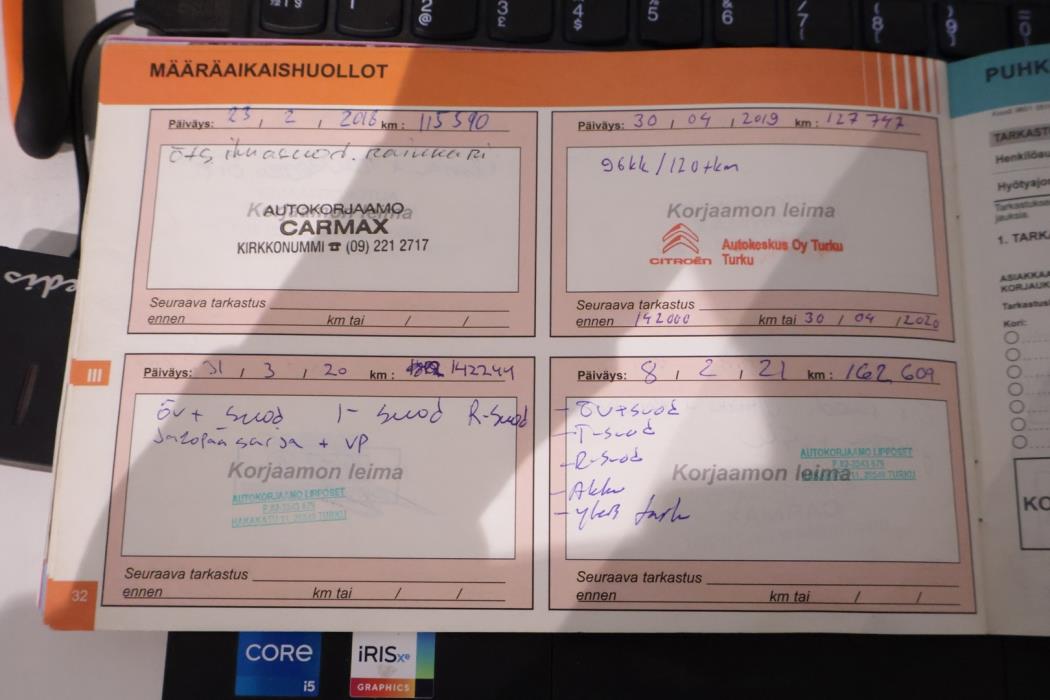 MÄÄRÄAIKAISHUOLLOT
Päiväys: 23 / 2 / 2018 km: 115590
AUTOKORJAAMO
Korjaamon leima
CARMAX
KIRKKONUMMI ☎ (09) 221 2717
Seuraava tarkastus
ennen km tai / /
Päiväys: 30 / 04 / 2019 km: 127747
96kk/120tkm
Korjaamon leima
CITROËN Autokeskus Oy Turku
Turku
Seuraava tarkastus
ennen 142000 km tai 30 / 04 / 2020
III
Päiväys: 31 / 3 / 20 km: 142244
öv+ suod I- suod R-suod
Jakopää sarja + VP
Korjaamon leima
AUTOKORJAAMO LIPPOSET
TURKU
Seuraava tarkastus
ennen km tai / /
32
Päiväys: 8 / 2 / 21 km: 162609
- öv+suod
- I-suod
- R-suod
- Akku
- yleis tark
Korjaamon leima
AUTOKORJAAMO LIPPOSET
TURKU
Seuraava tarkastus
ennen km tai / /
PUHK
TARKAST
Henkilöau
Hyötyajo
Tarkastuks
jauksia.
1. TARK
ASIAKKAA
KORJAUK
Tarkastus
Kori:
KO
CORE
i5
iRIS xe
GRAPHICS